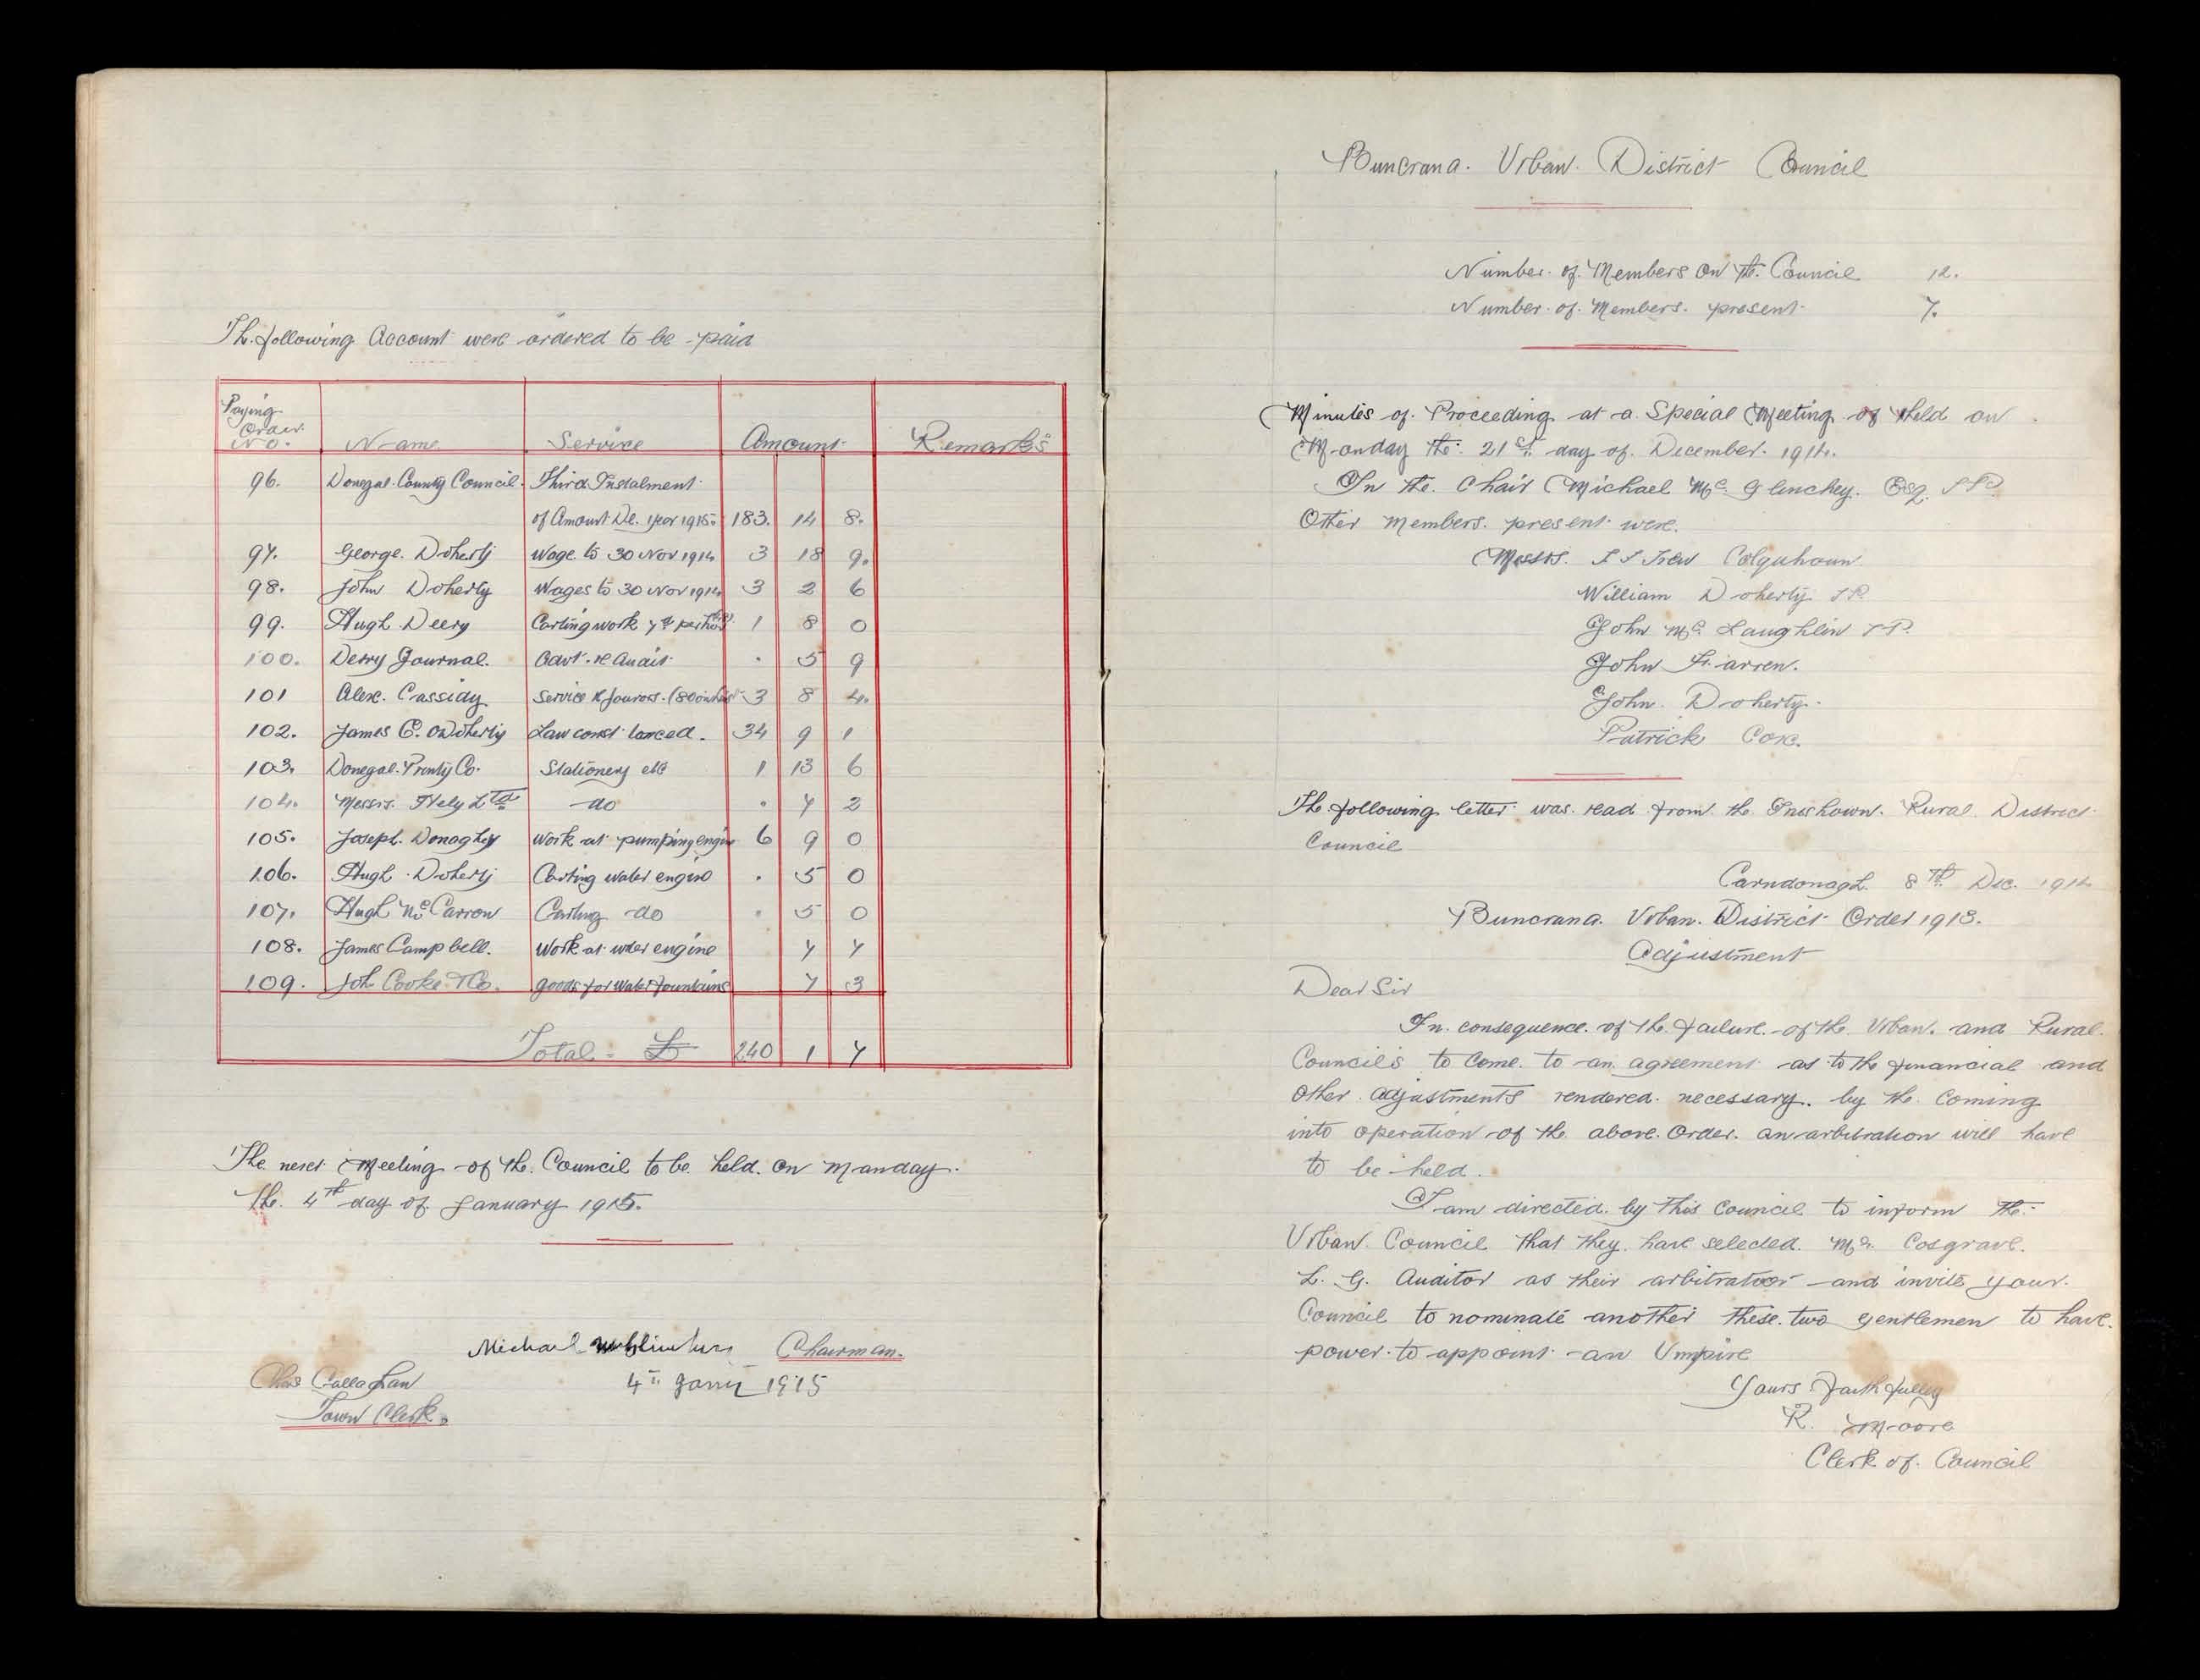 The following Account were ordered to be paid
Paying Order No. Name Service Amount Remarks
96. Donegal County Council. Third Instalment
of Amount De. year 1915. 183. 14 8.
97. George Doherty Wage to 30 Nov 1914 3 18 9.
98. John Doherty Wages to 30 Nov 1914 3 2 6
99. Hugh Deery Carting work 1 8 0
100. Derry Journal. Advt. re Audit . 5 9
101 Alex. Cassidy Service 3 8 4.
102. James E. O'Doherty Law cost taxced. 34 9 1
103. Donegal Printg Co. Stationery etc 1 13 6
104. Messrs. Hely Ltd do . 7 2
105. Joseph Donaghey Work at pumping engine 6 9 0
106. Hugh Doherty Carting water engine . 5 0
107. Hugh McCarron Carting do . 5 0
108. James Campbell. Work at water engine 7 7
109. Joh Cooke & Co. goods for water fountains 7 3
Total £ 240 1 7
The next Meeting of the Council to be held on Manday
the 4th day of January 1915.
Michael McGlinchey Chairman.
Chas Callaghan 4th Jany 1915
Town Clerk.
Buncrana Urban District Council
Number of Members on the Council 12.
Number of Members present 7.
Minutes of Proceeding at a Special Meeting of held on
Monday the 21st day of December 1914.
In the Chair Michael McGlinchey. Esq. J.P.
Other members present were.
Messrs. Trew Colquhoun
William Doherty J.P.
John McLaughlin J.P.
John Farren.
John Doherty.
Patrick Cox.
The following letter was read from the Inishown Rural District
Council
Carndonagh 8th Dec. 1914
Buncrana Urban District Order 1913.
Adjustment
Dear Sir
In consequence of the failure of the Urban and Rural
Councils to come to an agreement as to the financial and
other adjustments rendered necessary by the coming
into operation of the above Order an arbitration will have
to be held.
I am directed by this Council to inform the
Urban Council that they have selected Mr. Cosgrave.
L. G. Auditor as their arbitrator and invite your
Council to nominate another these two gentlemen to have
power to appoint an Umpire
Yours Faithfully
R. Moore
Clerk of Council